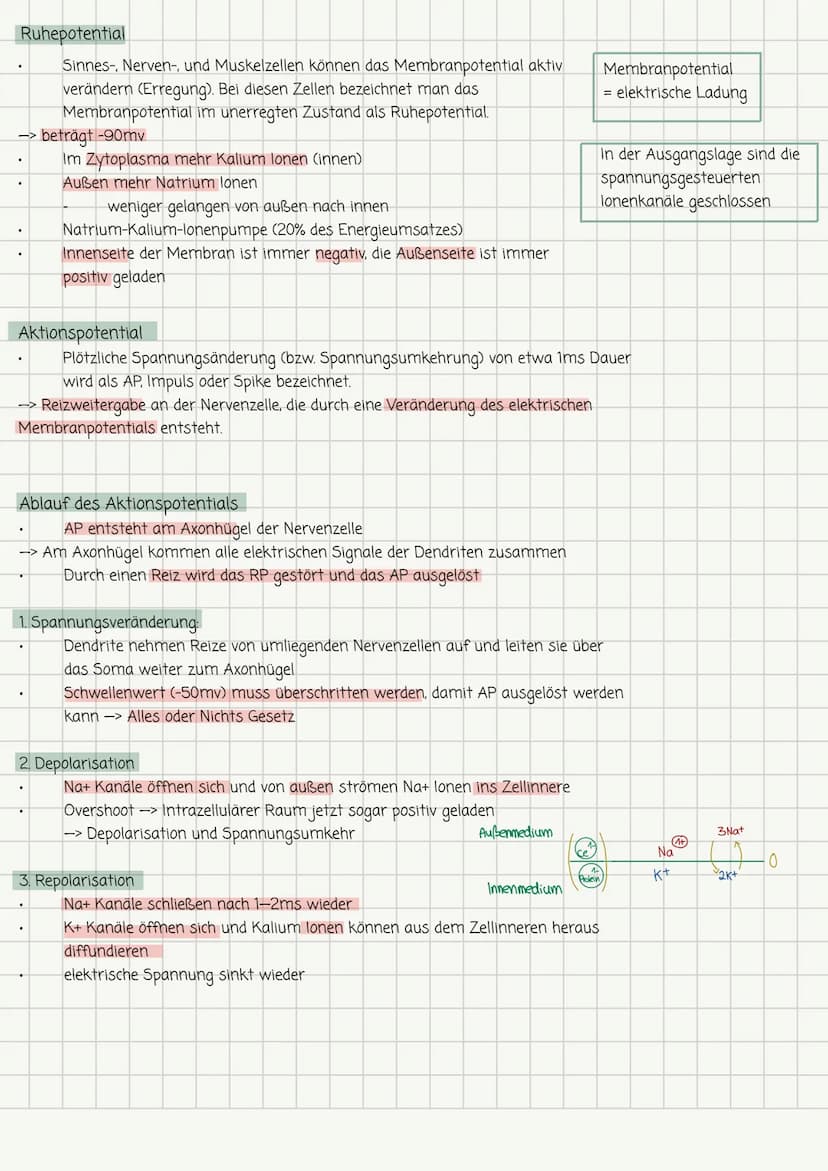 Ruhepotential
• Sinnes-, Nerven-, und Muskelzellen können das Membranpotential aktiv
verändern (Erregung). Bei diesen Zellen bezeichnet man das
Membranpotential im unerregten Zustand als Ruhepotential.
—> beträgt -90mv
• Im Zytoplasma mehr Kalium Ionen (innen)
• Außen mehr Natrium Ionen
- weniger gelangen von außen nach innen
• Natrium-Kalium-Ionenpumpe (20% des Energieumsatzes)
• Innenseite der Membran ist immer negativ, die Außenseite ist immer
positiv geladen
Membranpotential
= elektrische Ladung
In der Ausgangslage sind die
spannungsgesteuerten
Ionenkanäle geschlossen
Aktionspotential
• Plötzliche Spannungsänderung (bzw. Spannungsumkehrung) von etwa 1ms Dauer
wird als AP, Impuls oder Spike bezeichnet.
—> Reizweitergabe an der Nervenzelle, die durch eine Veränderung des elektrischen
Membranpotentials entsteht.
Ablauf des Aktionspotentials
• AP entsteht am Axonhügel der Nervenzelle
—> Am Axonhügel kommen alle elektrischen Signale der Dendriten zusammen
• Durch einen Reiz wird das RP gestört und das AP ausgelöst
1. Spannungsveränderung:
• Dendrite nehmen Reize von umliegenden Nervenzellen auf und leiten sie über
das Soma weiter zum Axonhügel
• Schwellenwert (-50mv) muss überschritten werden, damit AP ausgelöst werden
kann —> Alles oder Nichts Gesetz
2. Depolarisation
• Na+ Kanäle öffnen sich und von außen strömen Na+ Ionen ins Zellinnere
• Overshoot —> Intrazellulärer Raum jetzt sogar positiv geladen
—> Depolarisation und Spannungsumkehr
Außenmedium
Innenmedium
Protein
Na 1+
K+
3Na+
2K+
3. Repolarisation
• Na+ Kanäle schließen nach 1–2ms wieder
• K+ Kanäle öffnen sich und Kalium Ionen können aus dem Zellinneren heraus
diffundieren
• elektrische Spannung sinkt wieder